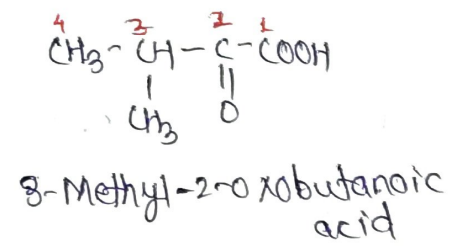 4 3 2 1
CH3-CH-C-COOH
CH3 O
3-Methyl-2-oxobutanoic
acid